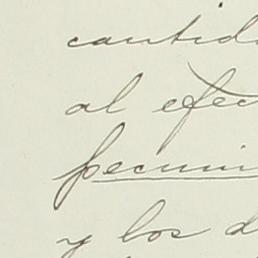 cantid
al efec
pecuni
y los d